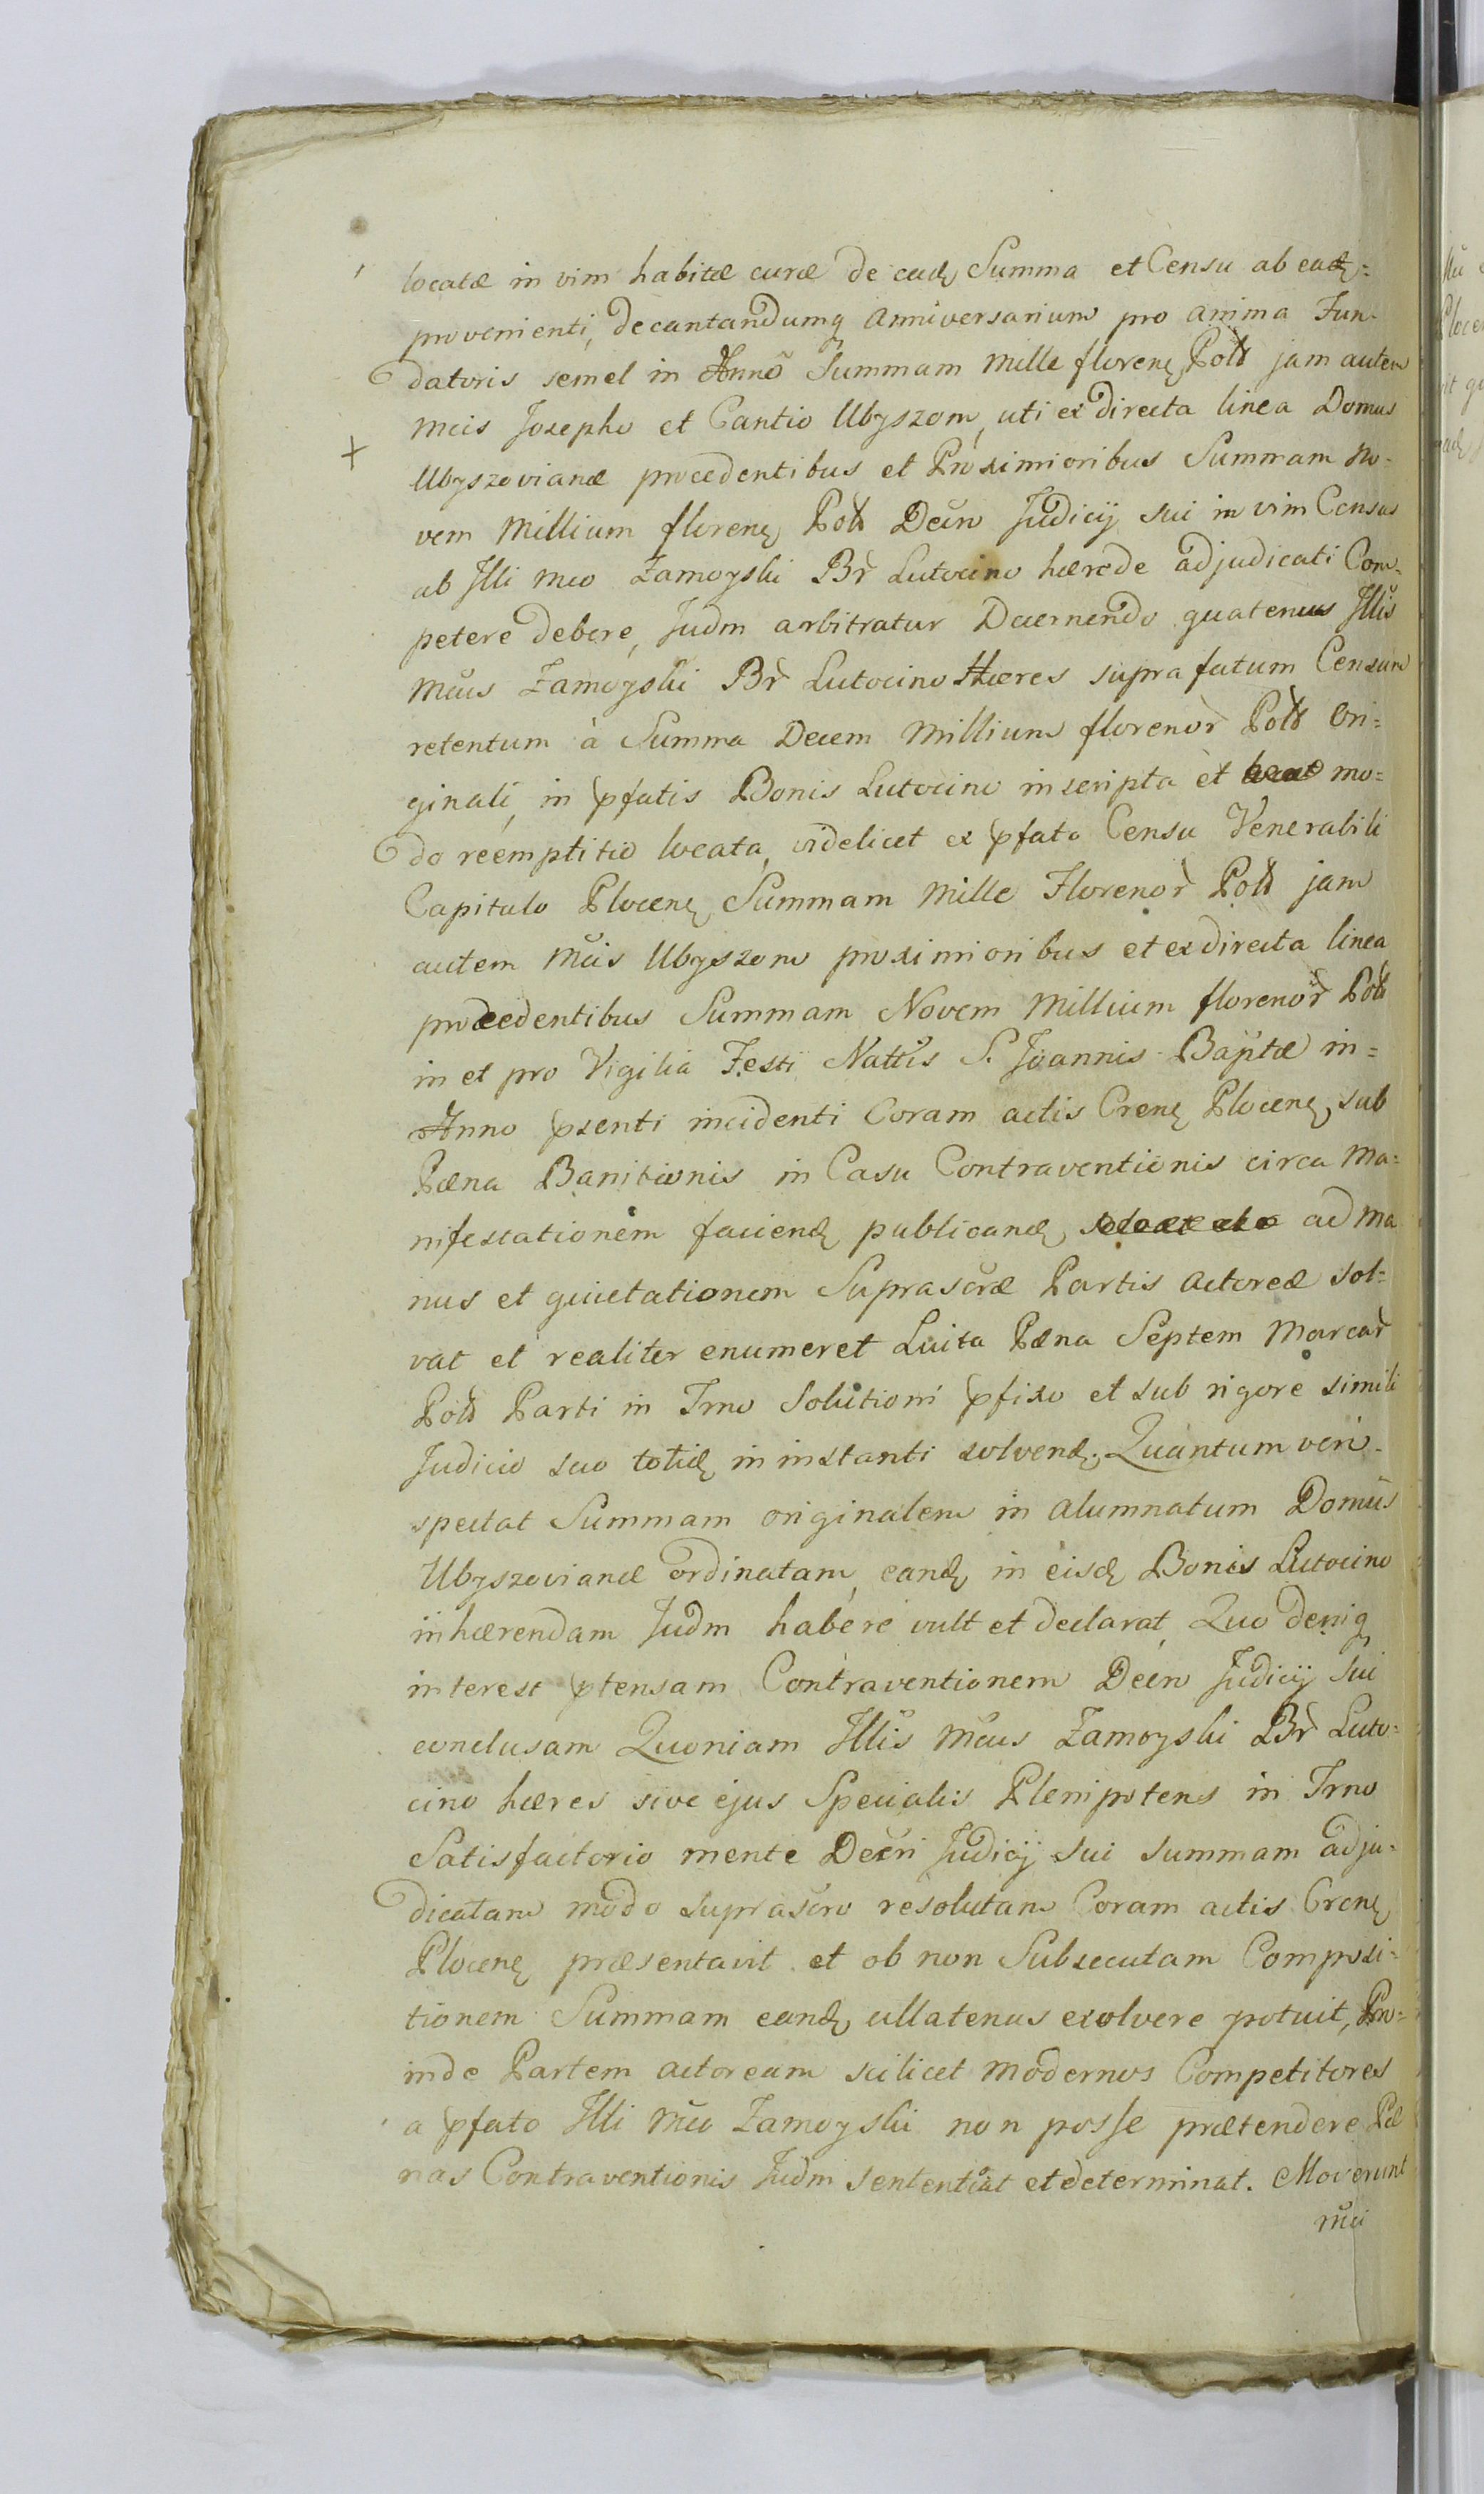 locatæ in vim habitæ curæ de eadę Summa et Censu ab eadę=
provenienti, decantandumq Anniversarium pro anima Fun-
datoris semel in Anno Summam Mille florenę Połł jam autem
Mcis Josepho et Cantio Ubyszom, uti ex directa linea Domus
Ubyszovianæ procedentibus et Proximioribus Summam No-
vem Millium florenę Połł Decrn Judicij sui in vim Census
ab Illi Mco Zamoyski Br̃ Lutocino hærede adjudicati Com-
petere debere, Judm arbitratur Decernendo quatenus Illis
Mcus Zamoyski Br̃ Lutocino Hæres suprafatum Censum
retentum à Summa Decem Millium florenor̃ Połł Ori=
ginali, in pfatis Bonis Lutocino inscripta et mo=
do reemptitio locata, videlicet ex pfato Censu Venerabili
Capitulo Plocenę Summam Mille Florenor̃ Połł jam
autem Mcis Ubyszom proximioribus et ex directa linea
procedentibus Summam Novem Millium florenor̃ Połł
in et pro Vigilia Festi Nattis S. Joannis Baptæ in=
Anno psenti incidenti Coram actis Crenę Plocenę, sub
Pæna Banitionis in Casu Contraventionis circa Ma=
nifestationem faciendę publicandę ad ma
nus et quietationem Suprascræ Partis Actoreæ sol=
vat et realiter enumeret Luita Pæna Septem Marcar̃
Połł Parti in Trno Solutioni pfixo et sub rigore simili
Judicio suo totidę in instanti solvendę. Quantum vero
spectat Summam originalem in Alumnatum Domus
Ubyszovianæ ordinatam, eandę in eisdę Bonis Lutocino
inhærendam Judm habere vult et declarat, Quo deniq
interest ptensam Contraventionem Decrn Judicij Sui
conclusam Quoniam Illis Mcus Zamoyski Br̃ Luto=
cino hæres sive ejus Specialis Plenipotens in Trno
Satisfactorio mente Decrni Judicij sui summam adju-
dicatam modo suprascro resolutam Coram actis Crenę
Plocenę præsentavit et ob non Subsecutam Composi-
tionem Summam eandę ullatenus exolvere potuit, Pro=
inde Partem actoream scilicet modernos Competitores
a pfato Illi Mco Zamoyski non posse prætendere Pæ
nas Contraventionis Judm sententiat et determinat. Moverunt
Mci